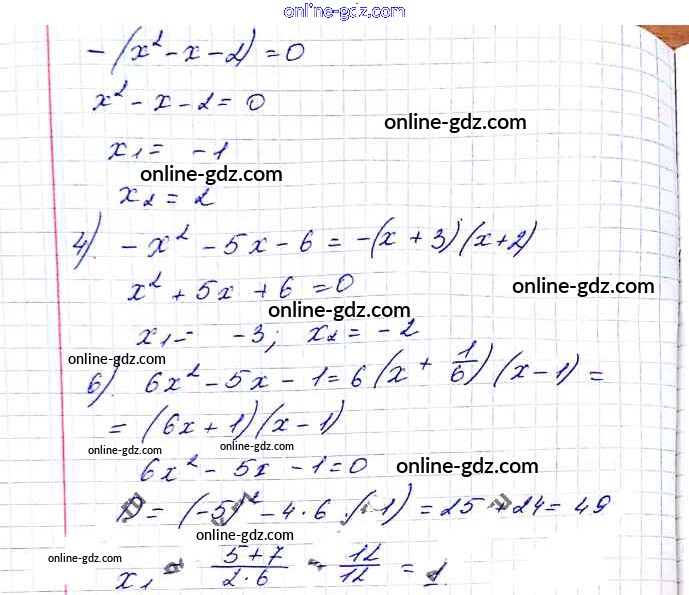 online-gdz.com
-(x² - x - 2) = 0
x² - x - 2 = 0
online-gdz.com
x₁ = -1
online-gdz.com
x₂ = 2
4). -x² - 5x - 6 = -(x + 3)(x + 2)
x² + 5x + 6 = 0
online-gdz.com
online-gdz.com
x₁ = -3; x₂ = -2
online-gdz.com
6). 6x² - 5x - 1 = 6(x + 1/6)(x - 1) =
= (6x + 1)(x - 1)
online-gdz.com
online-gdz.com
6x² - 5x - 1 = 0
online-gdz.com
D = (-5)² - 4 · 6 · (-1) = 25 + 24 = 49
online-gdz.com
online-gdz.com
x₁ = (5 + 7)/(2 · 6) = 12/12 = 1